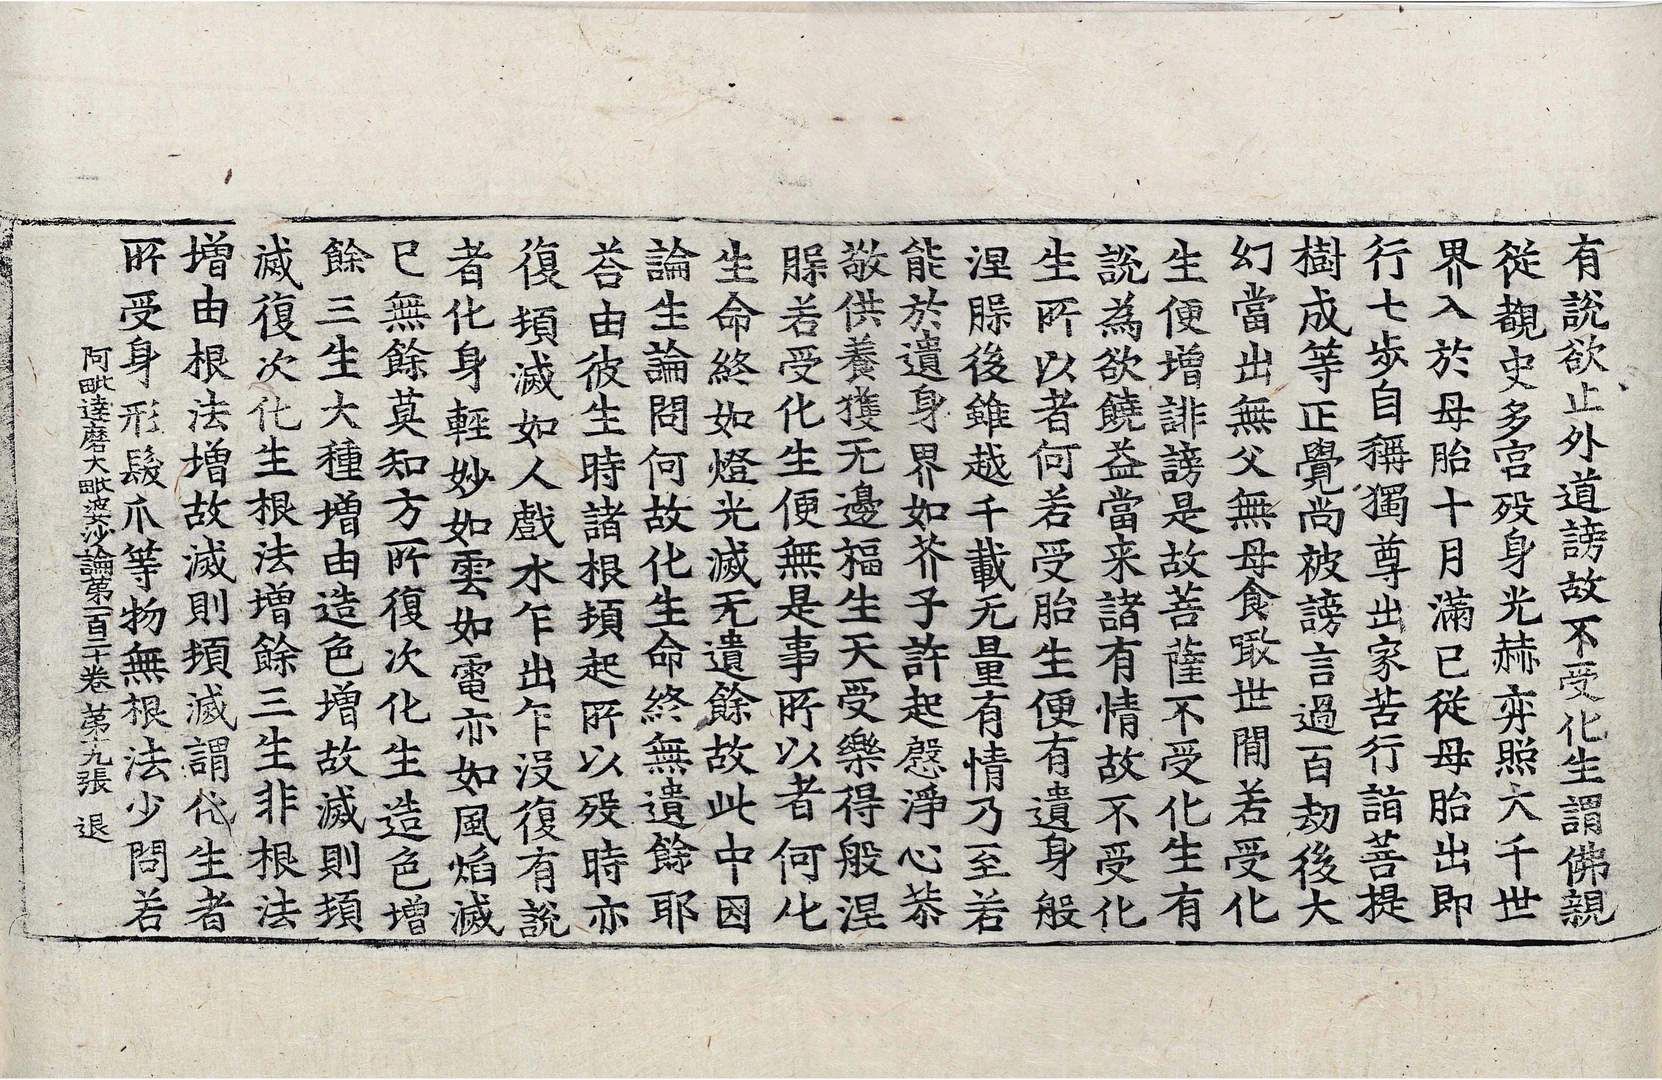 有說欲止外道謗故不受化生謂佛親
從覩史多宮歿身光赫弈照大千世
界入於母胎十月滿已從母胎出即
行七步自稱獨尊出家苦行詣菩提
樹成等正覺尚被謗言過百劫後大
幻當出無父無母食噉世閒若受化
生便增誹謗是故菩薩不受化生有
說為欲饒益當来諸有情故不受化
生所以者何若受胎生便有遺身般
涅槃後雖越千載无量有情乃至若
能於遺身界如芥子許起慇淨心恭
敬供養獲无邊福生天受樂得般涅
槃若受化生便無是事所以者何化
生命終如燈光滅无遺餘故此中因
論生論問何故化生命終無遺餘耶
荅由彼生時諸根頓起所以歿時亦
復頓滅如人戲水乍出乍没復有說
者化身輕妙如雲如電亦如風焰滅
已無餘莫知方所復次化生造色增
餘三生大種增由造色增故滅則頓
滅復次化生根法增餘三生非根法
增由根法增故滅則頓滅謂化生者
所受身形髮爪等物無根法少問若
阿毗達磨大毗婆沙論第一百二十卷 第十九張 退